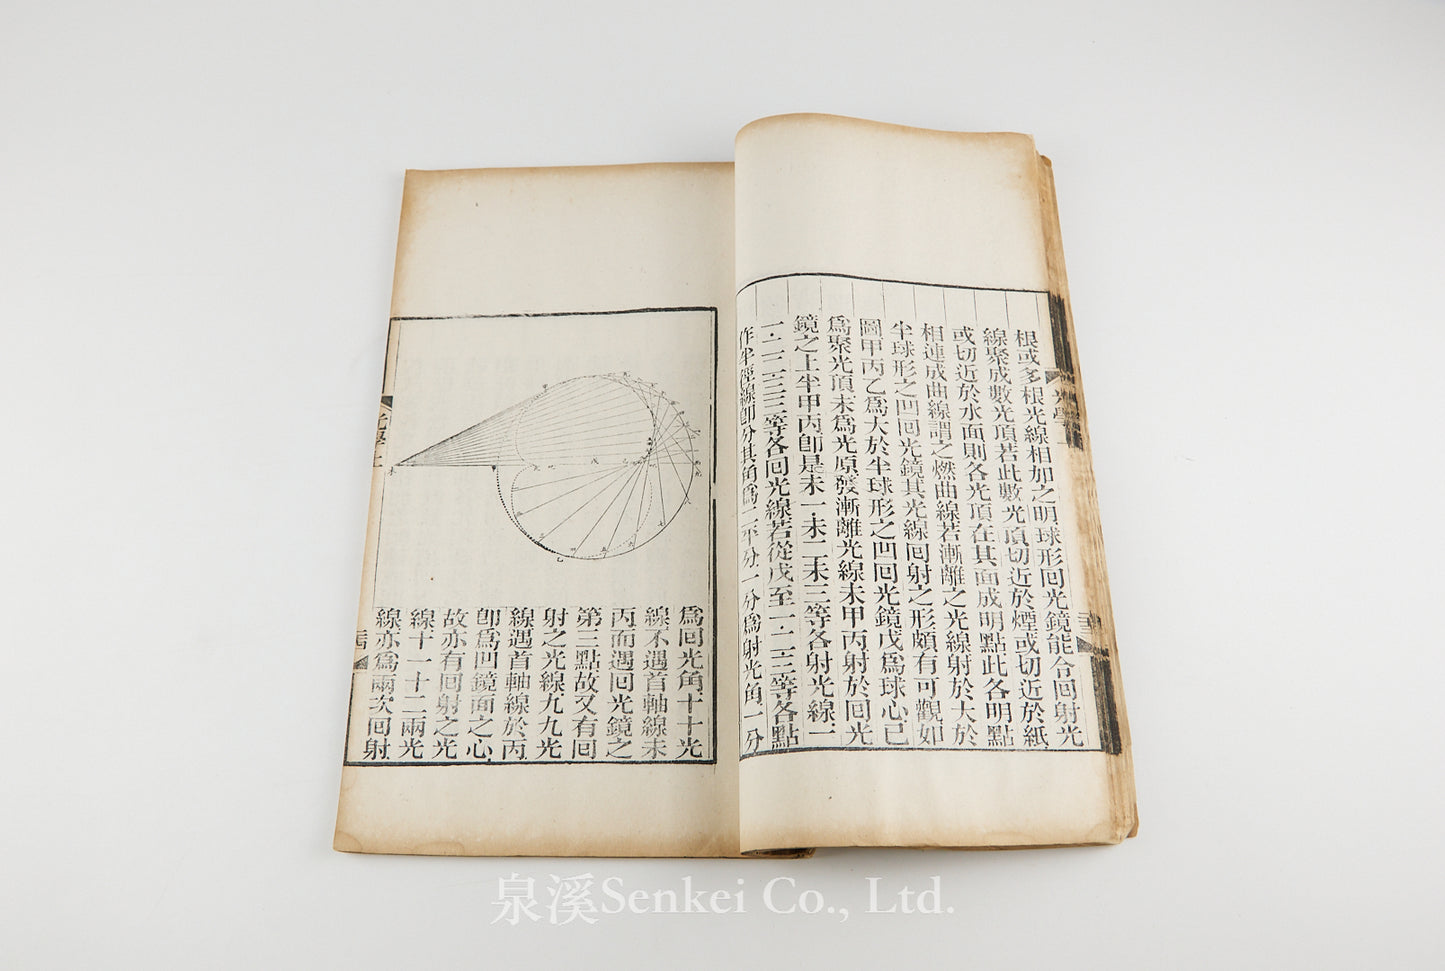 根或多根光線相加之明球形回光鏡能令回射光
線聚成數光頂若此數光頂切近於煙或切近於紙
或切近於水面則各光頂在其面成明點此各明點
相連成曲線謂之燃曲線若漸離之光線射於大於
半球形之凹回光鏡其光線回射之形頗有可觀如
圖甲丙乙為大於半球形之凹回光鏡戊為球心已
為聚光頂未為光原發漸離光線未甲丙射於回光
鏡之上半甲丙卽是未一未二未三等各射光線一
一二二三三等各回光線若從戊至一二三等各點
作半徑線卽分其角為二平分一分為射光角一分
為回光角十十光
線不遇首軸線未
丙而遇回光鏡之
第三點故又有回
射之光線九九光
線遇首軸線於丙
卽為凹鏡面之心
故亦有回射之光
線十一十二兩光
線亦為兩次回射
泉溪Senkei Co., Ltd.